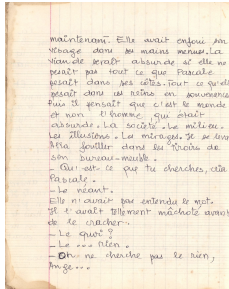 maintenant. Elle avait enfoui son
visage dans ses mains menues. La
viande serait absurde si elle ne
pesait pas tout ce que Pascale
pesait dans ses côtes. Tout ce qu'elle
pesait dans ses reins en souvenirs
Puis il pensait que c'est le monde
et non l'homme, qui était
absurde. La société. Le milieu.
Les illusions. Le mirages. Il se leva
alla fouiller dans les tiroirs de
son bureau-meuble.
- Qu'est-ce que tu cherches, cria
Pascale.
- Le néant.
Elle n'avait pas entendu le mot.
Il l'avait tellement mâchoté avant
de le cracher.
- Le quoi ?
- Le ... rien.
- On ne cherche pas le rien,
Ange...